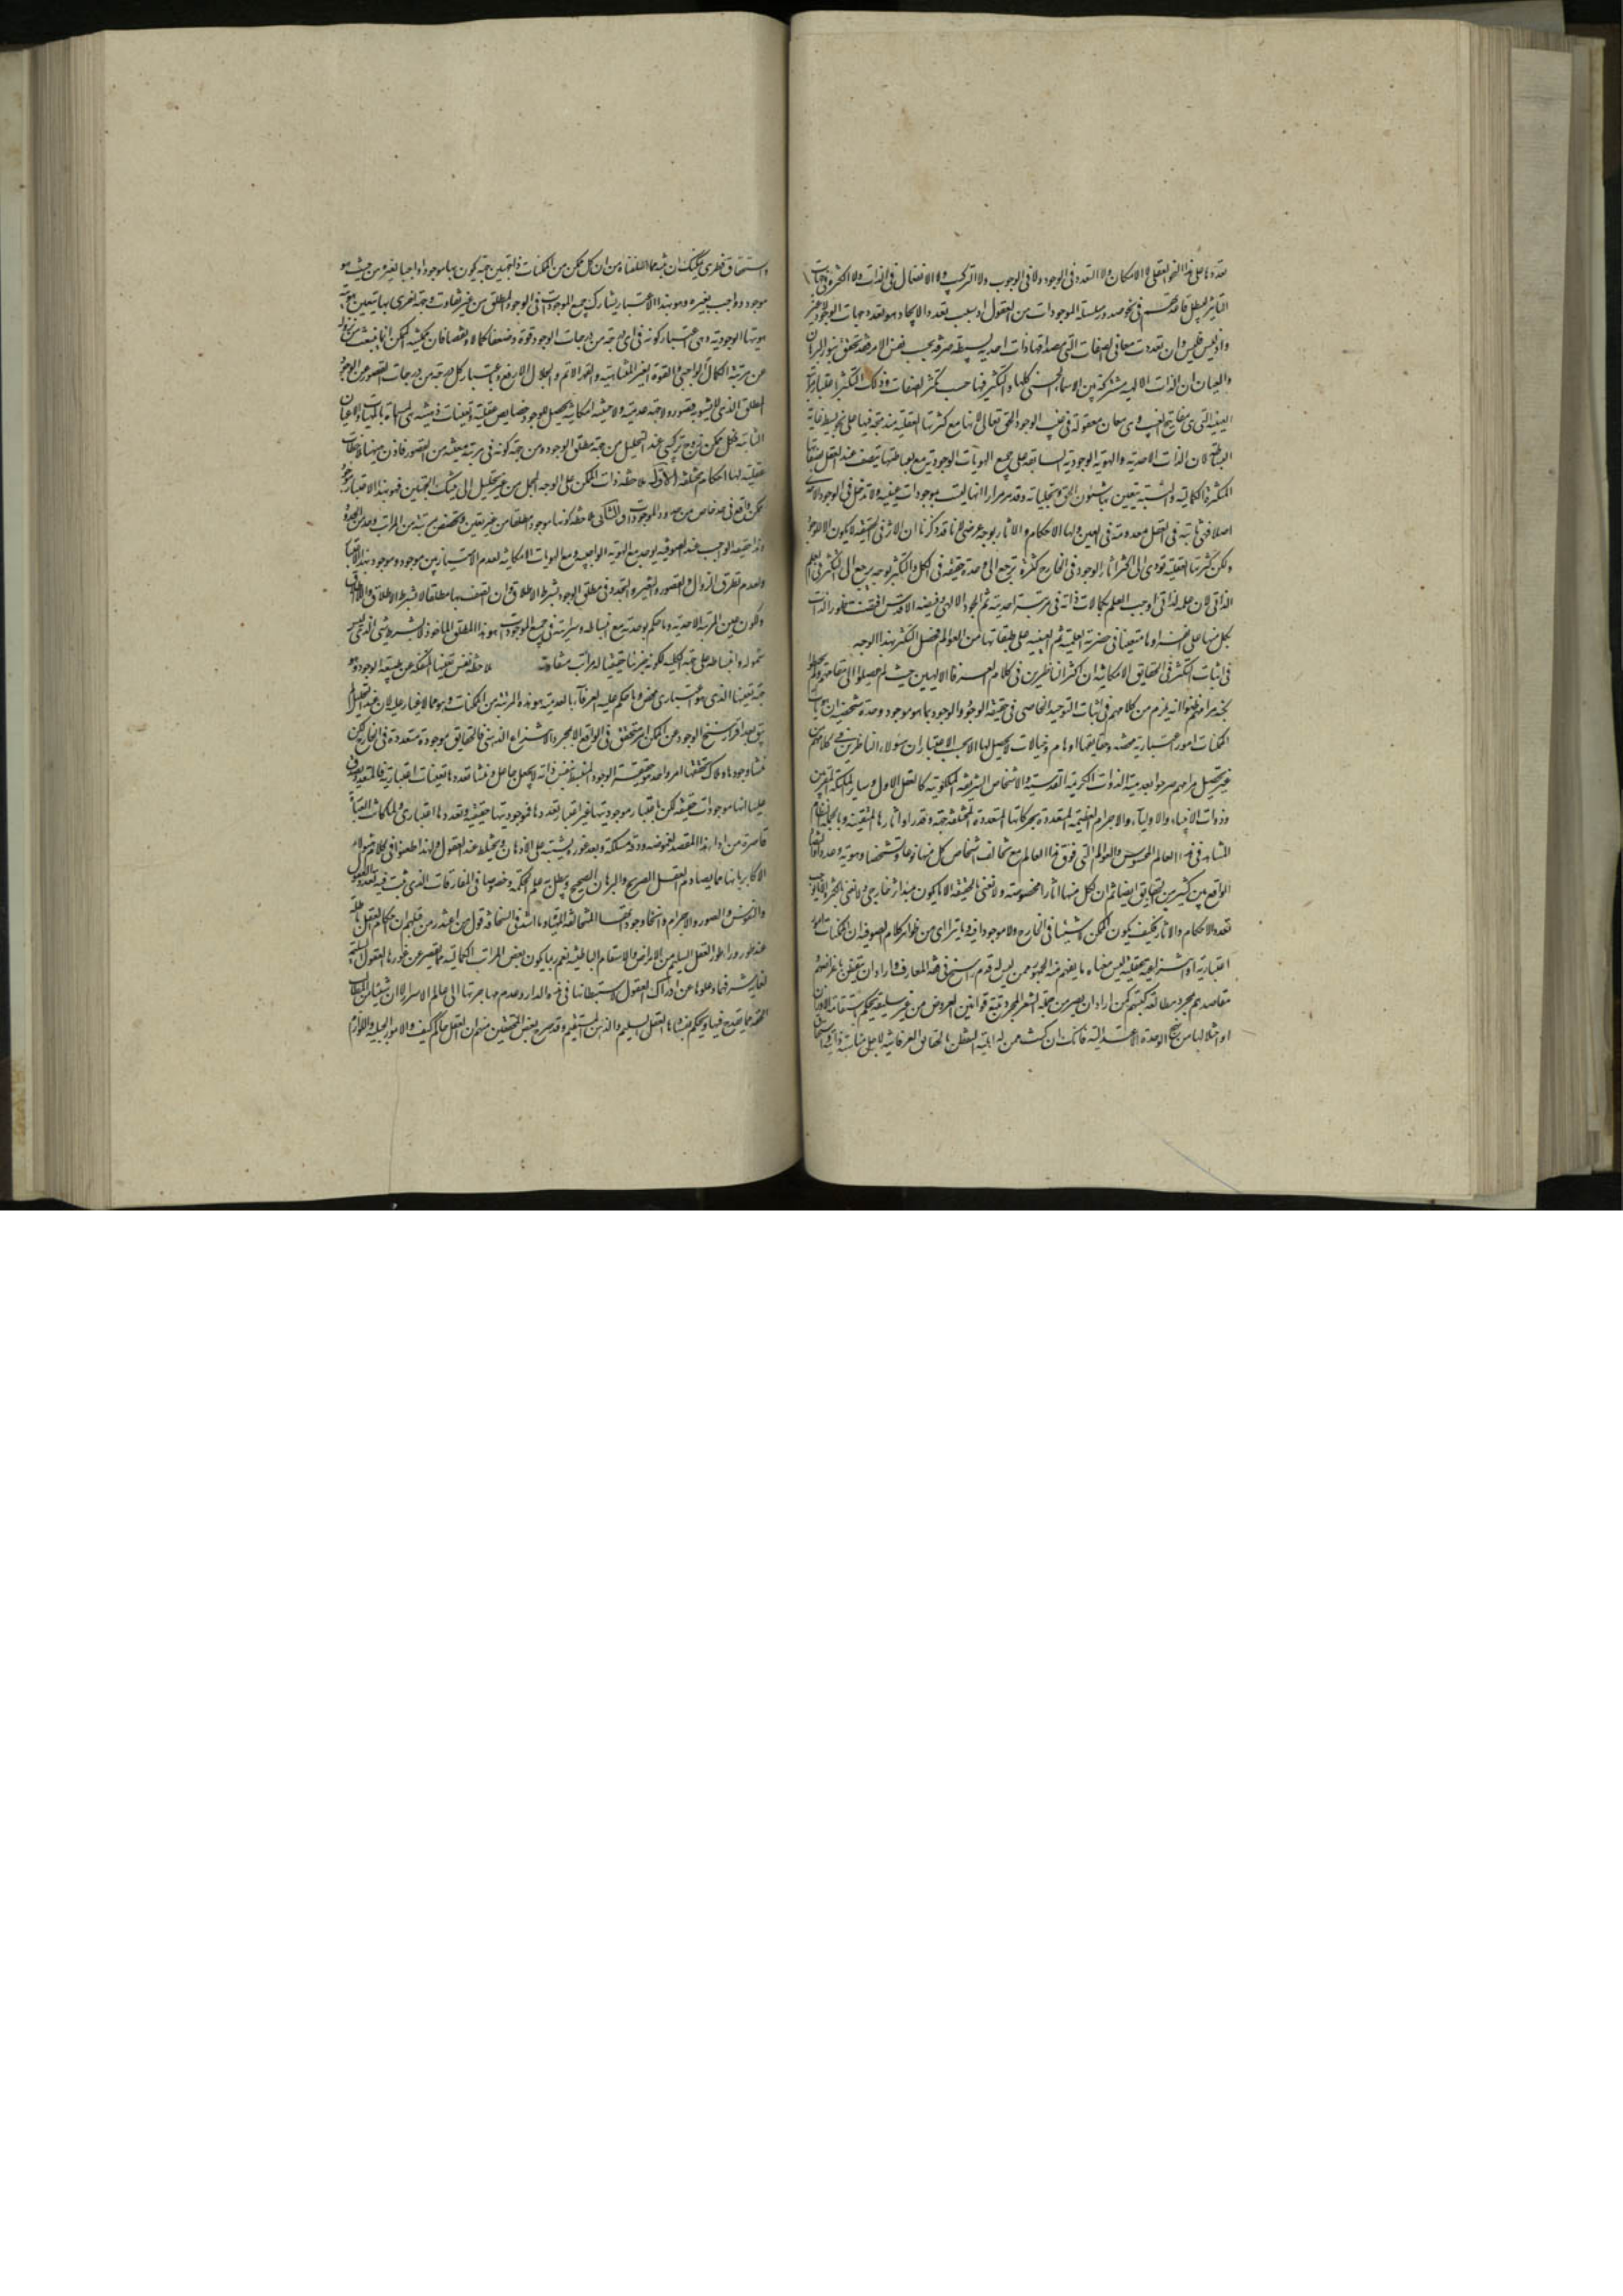 بعددها على هذا النحو العقلي لا الامكان ولا التعدد في الوجود ولا في الوجوب ولا التركيب ولا الانفعال في الذات ولا الكثرة في
التاثير
واذ ليس فليس وان تعددت معاني الصفات التي مصداقها ذات احدية بسيطة صرفة بحسب نفس الامر فقد تحقق بنور البرهان
والعيان ان الذات الالهية مشتركة بين الاسماء الحسنى كلها والتكثر فيها حسب تكثر الصفات وذلك التكثر باعتبار مراتب
الغيبية التي هي مفاتيح الغيب وهي معان معقولة في غيب الوجود الحق تعالى لانها مع كثرتها العقلية مندمجة فيها على نحو بسيط غاية
البساطة لان الذات الاحدية والهوية الوجودية السابقة على جميع الهويات الوجودية مع بساطتها يتصف عند العقل بصفاتها
المتكثرة الكمالية والنسبية يتعين بها شئون الحق وتجلياته وقد مر مرارا انها ليست بموجودات عينية ولا تدخل في الوجود
اصلا فهي ثابتة في العقل معدومة في العين ولها الاحكام والاثار بوجه عرضي لانا قد ذكرنا ان الاثر في الحقيقة لا يكون الا للوجود
ولكن كثرتها العقلية تؤدي الى تكثر اثار الوجود في الخارج كثرة ترجع الى وحدة حقيقة في الكل والتكثر بوجه يرجع الى التكثر في العلم
الذاتي لان علمه لذاتي اوجب العلم بكمالات ذاته في مرتبة احديته ثم الجود الالهي وفيضه الاقدس اقتضت ظهور الذات
بكل منها على انفراده متعينا في حضرته العلمية ثم العينية على طبقاتها من العوالم فحصل التكثر بهذا الوجه
في اثبات التكثر في الحقايق الامكانية ان اكثر الناظرين في كلام العرفاء الالهيين حيث لم يصلوا الى مقامهم ولم يحيطوا
بكنه مرامهم ظنوا انه يلزم من كلامهم في اثبات التوحيد الخاصي في حقيقة الوجود والوجود بما هو موجود وحدة شخصية ان هويات
الممكنات امور اعتبارية محضة وحقايقها اوهام وخيالات لا تحصل لها الا بحسب الاعتبار ان هؤلاء الناظرين في كلامهم من
غير تحصيل مرامهم صرحوا بعدمية الذوات الكريمة القدسية والاشخاص الشريفة الملكوتية كالعقل الاول وساير الملئكة المقربين
وذوات الانبياء والاولياء والاجرام العظيمة المتعددة بحركاتها المتعددة المختلفة جهة وقدرا واثارها المتفننة وبالجملة النظام
المشاهد في هذا العالم المحسوس والعوالم التي فوق هذا العالم مع تخالف اشخاص كل منها نوعا وتشخصا وهوية وعددا والتضاد
الواقع بين كثير من الحقايق ايضا ثم ان لكل منها اثارا مخصوصة ولا نعني بالحقيقة الا ما يكون مبدأ اثر خارجي ولا نعني بالكثرة الا ما يوجب
تعدد الاحكام والاثار فكيف يكون الممكن لا شيئا في الخارج ولا موجودا فيه وما يتراءى من ظواهر كلام الصوفية ان الممكنات امور
اعتبارية او انتزاعية عقلية ليس معناه ما يفهم منه الجمهور ممن ليس له قدم راسخ في فقه المعارف واراد ان يتفطن باغراضهم و
مقاصدهم بمجرد مطالعة كتبهم كمن اراد ان يصير من جملة الشعراء بمجرد تتبع قوانين العروض من غير سليقة يحكم باستقامة الاوزان
او اختلالها من نهج الوحدة الاعتدالية فانك ان كنت ممن له اهلية التفطن بالحقايق العرفانية لاجل مناسبة ذاتية
واستحقاق فطري يمكنك ان تتنبه مما اسلفناه من ان كل ممكن من الممكنات ذا جهتين جهة يكون بها موجودا واجبا لغيره من حيث هو
موجود وواجب بغيره وهو بهذا الاعتبار يشارك جميع الموجودات في الوجود المطلق من غير تفاوت وجهة اخرى بها يتعين
هويتها الوجودية وهي اعتبار كونه في اي درجة من درجات الوجود قوة وضعفا كمالا ونقصانا فان ممكنية الممكن انما ينبعث من نزوله
عن مرتبة الكمال الواجبي والقوة الغير المتناهية والقهر الاتم والجلال الارفع وباعتبار كل درجة من درجات القصور عن الوجود
المطلق الذي لا يشوبه قصور ولا جهة عدمية ولا حيثية امكانية يحصل للوجود خصايص عقلية وتعينات ذهنية هي المسماة بالمهيات والاعيان
الثابتة فكل ممكن زوج تركيبي عند التحليل من جهة مطلق الوجود ومن جهة كونه في مرتبة معينة من القصور فاذن ههنا ملاحظات
عقلية لها احكام مختلفة الاولى ملاحظة ذات الممكن على الوجه المجمل من غير تحليل الى تينك الجهتين فهو بهذا الاعتبار موجود
ممكن واقع في حد خاص من حدود الموجودات والثاني ملاحظة كونها موجودا مطلقا من غير تعين وتخصص بمرتبة من المراتب وحد من الحدود
وهذا حقيقة الواجب عند الصوفية يوجد مع الهوية الواجبية ومع الهويات الامكانية لعدم الامتياز بين موجود وموجود بهذا الاعتبار
ولعدم تطرق الزوال والقصور والتغير والتجدد في مطلق الوجود بشرط الاطلاق وان اتصف بها مطلقا لا بشرط الاطلاق
وكون عين المرتبة الاحدية وما حكم بوحدته مع انبساطه وسرايته في جميع الموجودات هو هذا المطلق الماخوذ لا بشرط شيء الذي ليس
شموله وانبساطه على جهة الكلية لكونه جزئيا حقيقيا له مراتب متفاوتة ملاحظة نفس تعينها المنفكة عن طبيعة الوجود وهو
جهة تعينها الذي هو اعتباري محض وما حكم عليه العرفاء بالعدمية هو هذه المرتبة من الممكنات وهو مما لا غبار عليه لان عند التحليل لم
يبق بعد افراز سنخ الوجود عن الممكن امر متحقق في الواقع الا بمجرد الانتزاع الذهني فالحقايق موجودة متعددة في الخارج لكن
منشأ وجودها وملاك تحققها امر واحد هو حقيقة الوجود المنبسط بنفس ذاته لا بجعل جاعل ومنشأ تعددها تعينات اعتبارية فالمتعدد يصدق
عليها انها موجودات حقيقة لكن اعتبار موجوديتها غير اعتبار تعددها فموجوديتها حقيقية وتعددها اعتباري ولما كانت العبارة
قاصرة من اداء هذا المقصد لغموضه ودقة مسلكه وبعد غوره يشتبه على الاذهان ويختلط عند العقول ولهذا طعنوا في كلام هؤلاء
الاكابر بانها مما يصادم العقل الصريح والبرهان الصحيح ويبطل به علم الحكمة وخصوصا فن المفارقات الذي يثبت فيه تعدد العقول
والنفوس والصور والاجرام وانحاء وجوداتها المتخالفة الماهيات وما اشد في السخافة قول من اعتذر من قبلهم ان احكام العقل باطلة
عند طور وراء طور العقل السليم من الامراض والاسقام الباطنية نعم ربما يكون بعض المراتب الكمالية مما يقصر عن غورها العقول السليمة
لغاية شرفها وعلوها عن ادراك العقول لاستيطانها في هذه الدار وعدم مهاجرتها الى عالم الاسرار لا ان شيئا من المطالب
الحقة مما يقدح فيها ويحكم بفسادها العقل السليم والذهن المستقيم وقد صرح بعض المحققين منهم ان العقل حاكم كيف والامور الجبلية واللوازم